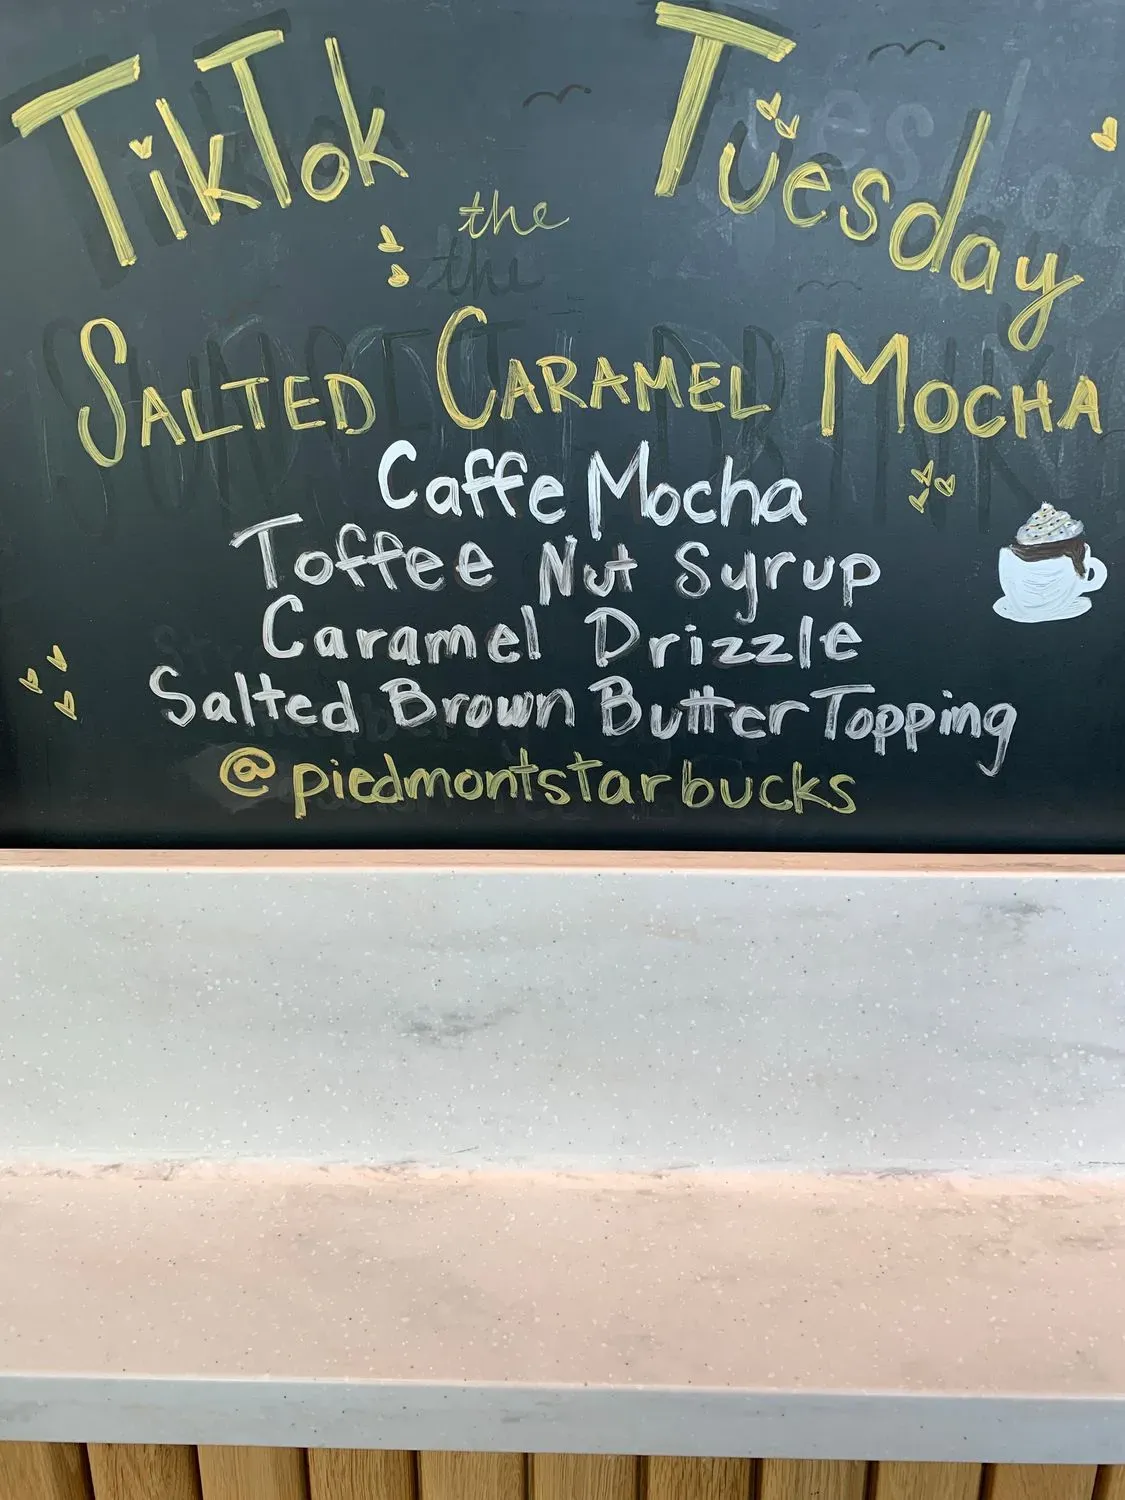 TikTok Tuesday
the
SALTED CARAMEL MOCHA
Caffe Mocha
Toffee Nut Syrup
Caramel Drizzle
Salted Brown Butter Topping
@piedmontstarbucks